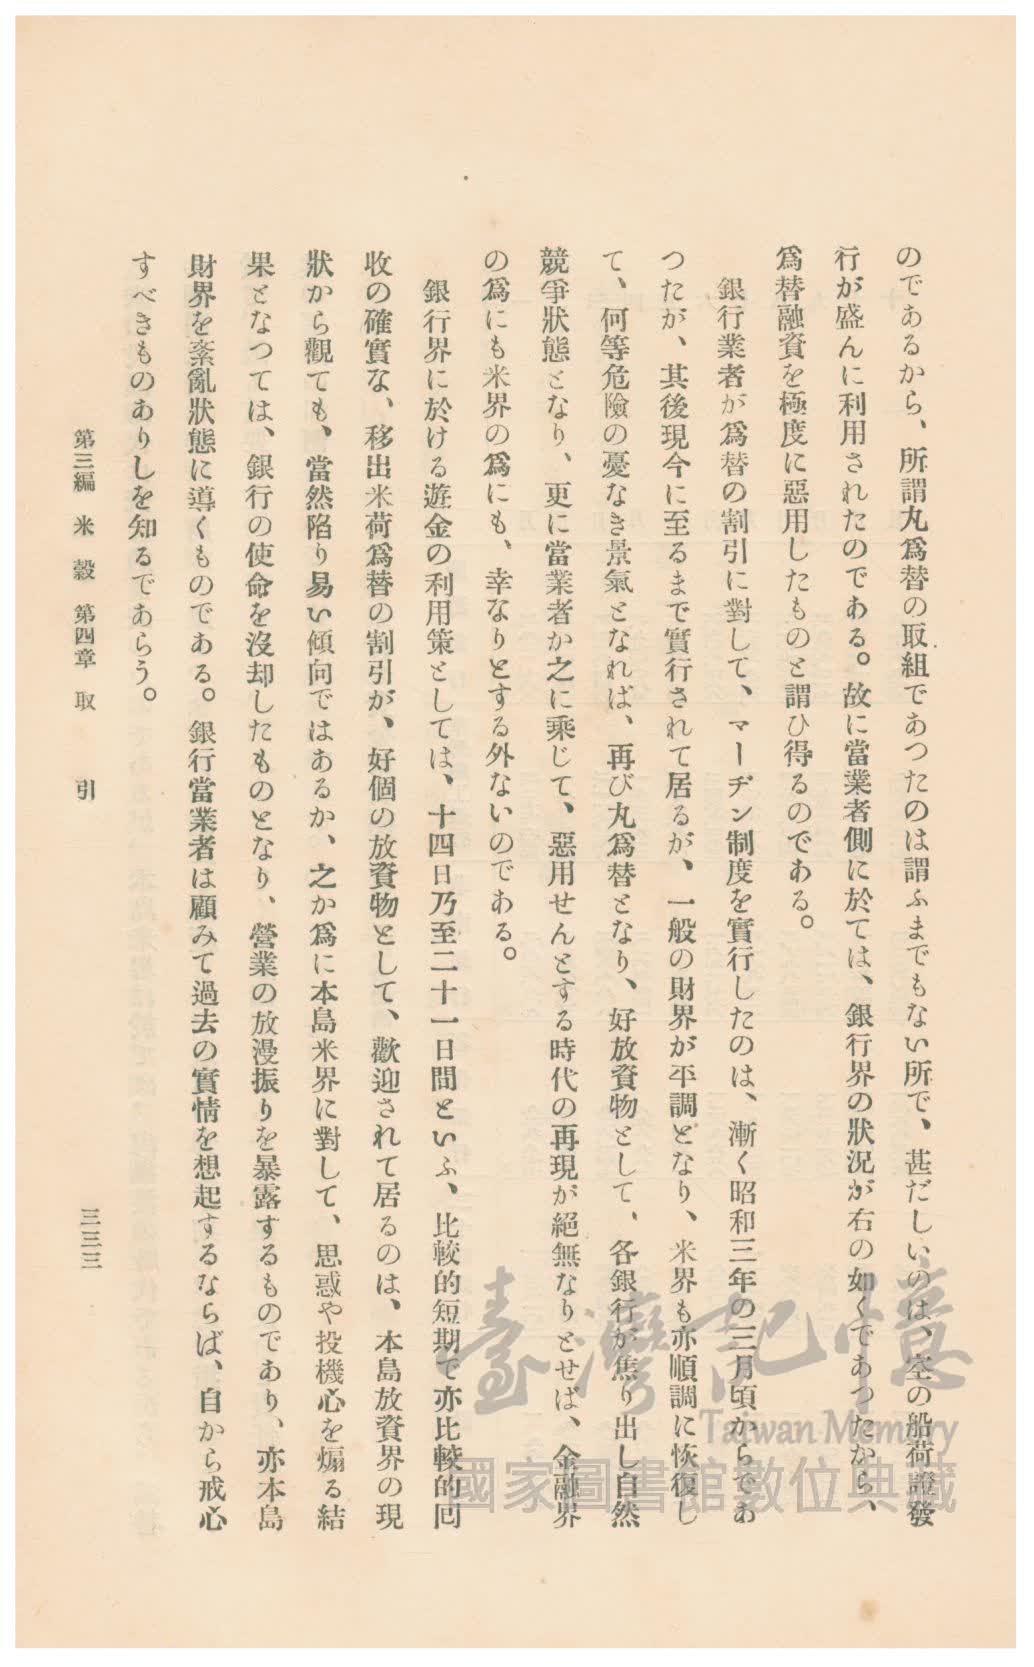 のであるから、所謂丸爲替の取組であつたのは謂ふまでもない所で、甚だしいのは、空の船荷證發
行が盛んに利用されたのである。故に當業者側に於ては、銀行界の狀況が右の如くであつたから、
爲替融資を極度に惡用したものと謂ひ得るのである。
銀行業者が爲替の割引に對して、マーヂン制度を實行したのは、漸く昭和三年の三月頃からであ
つたが、其後現今に至るまで實行されて居るが、一般の財界が平調となり、米界も亦順調に恢復し
て、何等危險の憂なき景氣となれば、再び丸爲替となり、好放資物として、各銀行が焦り出し自然
競爭狀態となり、更に當業者か之に乘じて、惡用せんとする時代の再現が絕無なりとせば、金融界
の爲にも米界の爲にも、幸なりとする外ないのである。
銀行界に於ける遊金の利用策としては、十四日乃至二十一日間といふ、比較的短期で亦比較的回
收の確實な、移出米荷爲替の割引が、好個の放資物として、歡迎されて居るのは、本島放資界の現
狀から觀ても、當然陷り易い傾向ではあるか、之か爲に本島米界に對して、思惑や投機心を煽る結
果となつては、銀行の使命を沒却したものとなり、營業の放漫振りを暴露するものであり、亦本島
財界を紊亂狀態に導くものである。銀行當業者は顧みて過去の實情を想起するならば、自から戒心
すべきものありしを知るであらう。
第三編 米穀 第四章 取引
三三三
臺灣記憶
Taiwan Memory
國家圖書館數位典藏